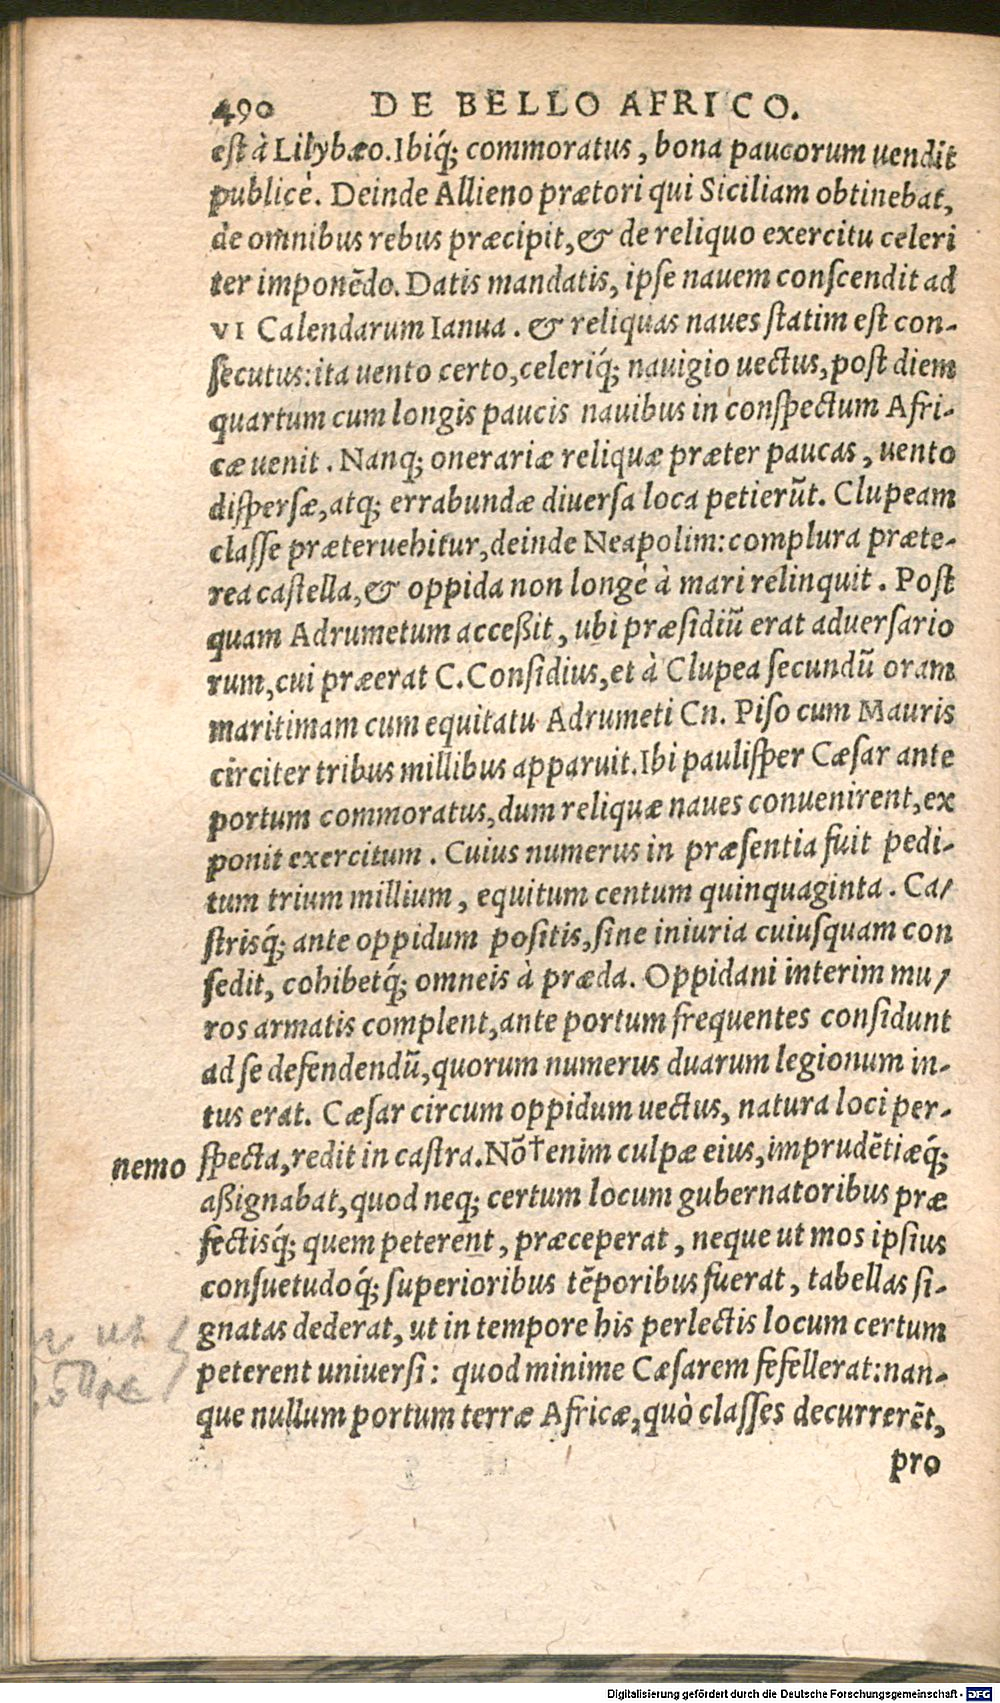 490 DE BELLO AFRICO.
est à Lilybæo. Ibiq́; commoratus, bona paucorum uendit
publicè. Deinde Allieno prætori qui Siciliam obtinebat,
de omnibus rebus præcipit, & de reliquo exercitu celeri
ter imponẽdo. Datis mandatis, ipse nauem conscendit ad
VI Calendarum Ianua. & reliquas naues statim est con-
secutus: ita uento certo, celeriq́; nauigio uectus, post diem
quartum cum longis paucis nauibus in conspectum Afri-
cæ uenit. Nanq; onerariæ reliquæ præter paucas, uento
dispersæ, atq; errabundæ diuersa loca petierũt. Clupeam
classe præteruehitur, deinde Neapolim: complura præte-
rea castella, & oppida non longè à mari relinquit. Post
quam Adrumetum acceßit, ubi præsidiũ erat aduersario
rum, cui præerat C. Considius, et à Clupea secundũ oram
maritimam cum equitatu Adrumeti Cn. Piso cum Mauris
circiter tribus millibus apparuit. Ibi paulisper Cæsar ante
portum commoratus, dum reliquæ naues conuenirent, ex
ponit exercitum. Cuius numerus in præsentia fuit pedi-
tum trium millium, equitum centum quinquaginta. Ca/
strisq́; ante oppidum positis, sine iniuria cuiusquam con
sedit, cohibetq́; omneis à præda. Oppidani interim mu/
ros armatis complent, ante portum frequentes considunt
ad se defendendũ, quorum numerus duarum legionum in-
tus erat. Cæsar circum oppidum uectus, natura loci per-
nemo specta, redit in castra. Nõ†enim culpæ eius, imprudẽtiæq́;
aßignabat, quod neq; certum locum gubernatoribus præ
fectisq́; quem peterent, præceperat, neque ut mos ipsius
consuetudoq́; superioribus tẽporibus fuerat, tabellas si-
gnatas dederat, ut in tempore his perlectis locum certum
peterent uniuersi: quod minime Cæsarem fefellerat: nan-
que nullum portum terræ Africæ, quò classes decurrerẽt,
pro
Digitalisierung gefördert durch die Deutsche Forschungsgemeinschaft - DFG